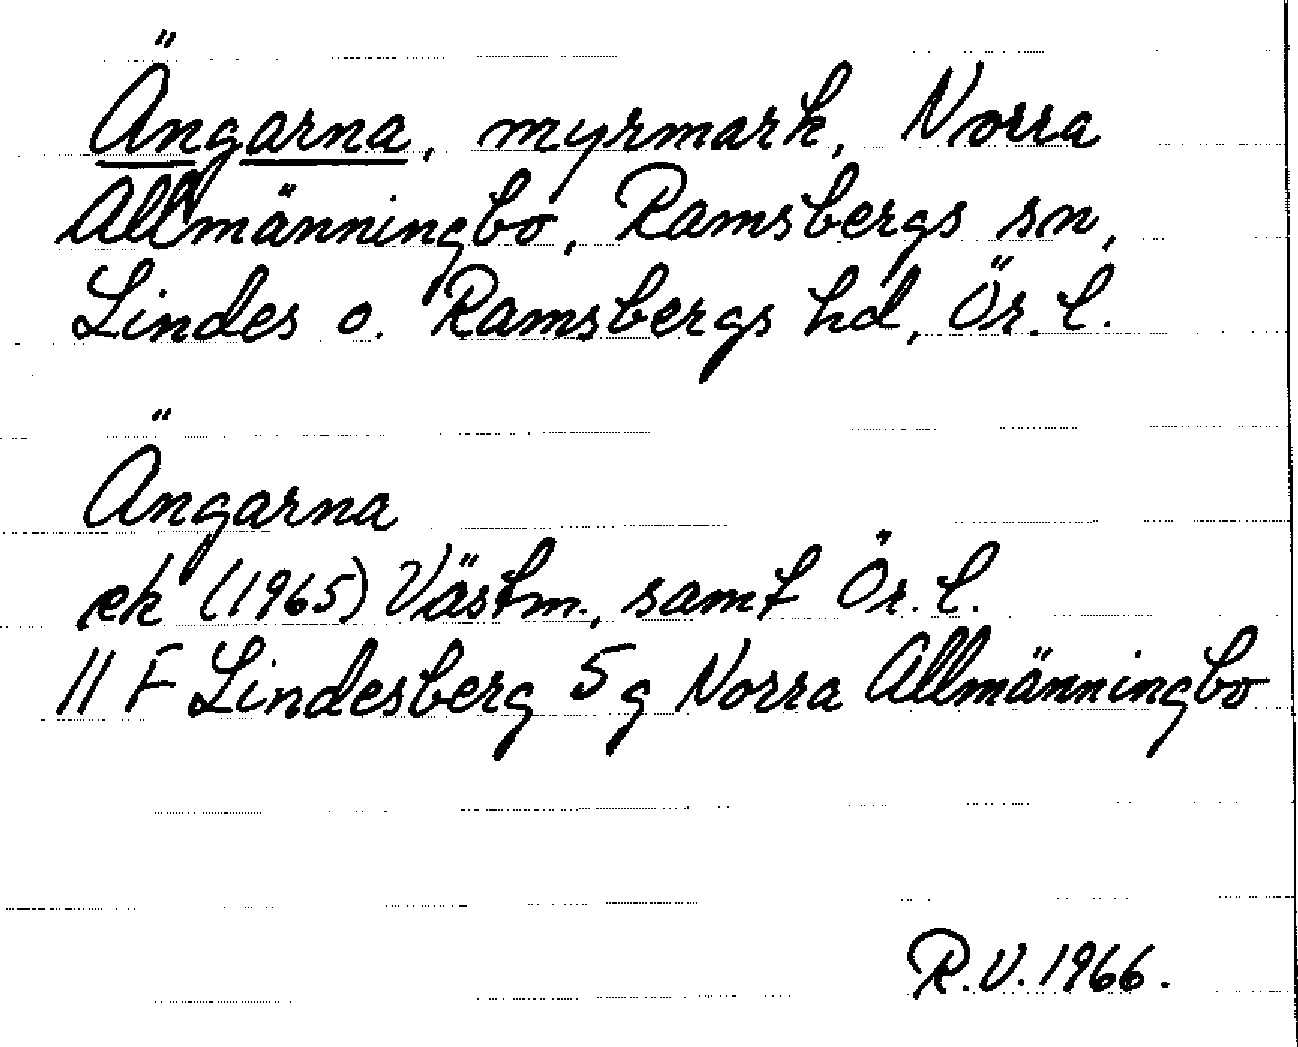 Ängarna, myrmark, Norra
Allmänningbo, Ramsbergs sn,
Lindes o. Ramsbergs hd, Ör. l.
Ängarna
ek (1965) Västm., samt Ör. l.
11 F Lindesberg 5 g Norra Allmänningbo
R.V. 1966.